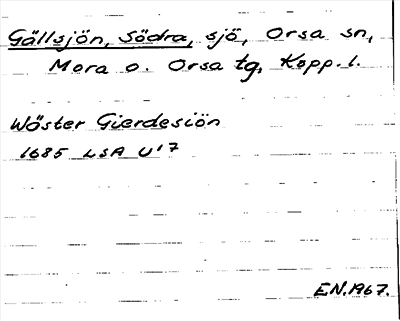 Gällsjön, Södra, sjö, Orsa sn,
Mora o. Orsa tg, Kopp. l.
Wäster Gierdesiön
1685 LSA U17
EN.1967.